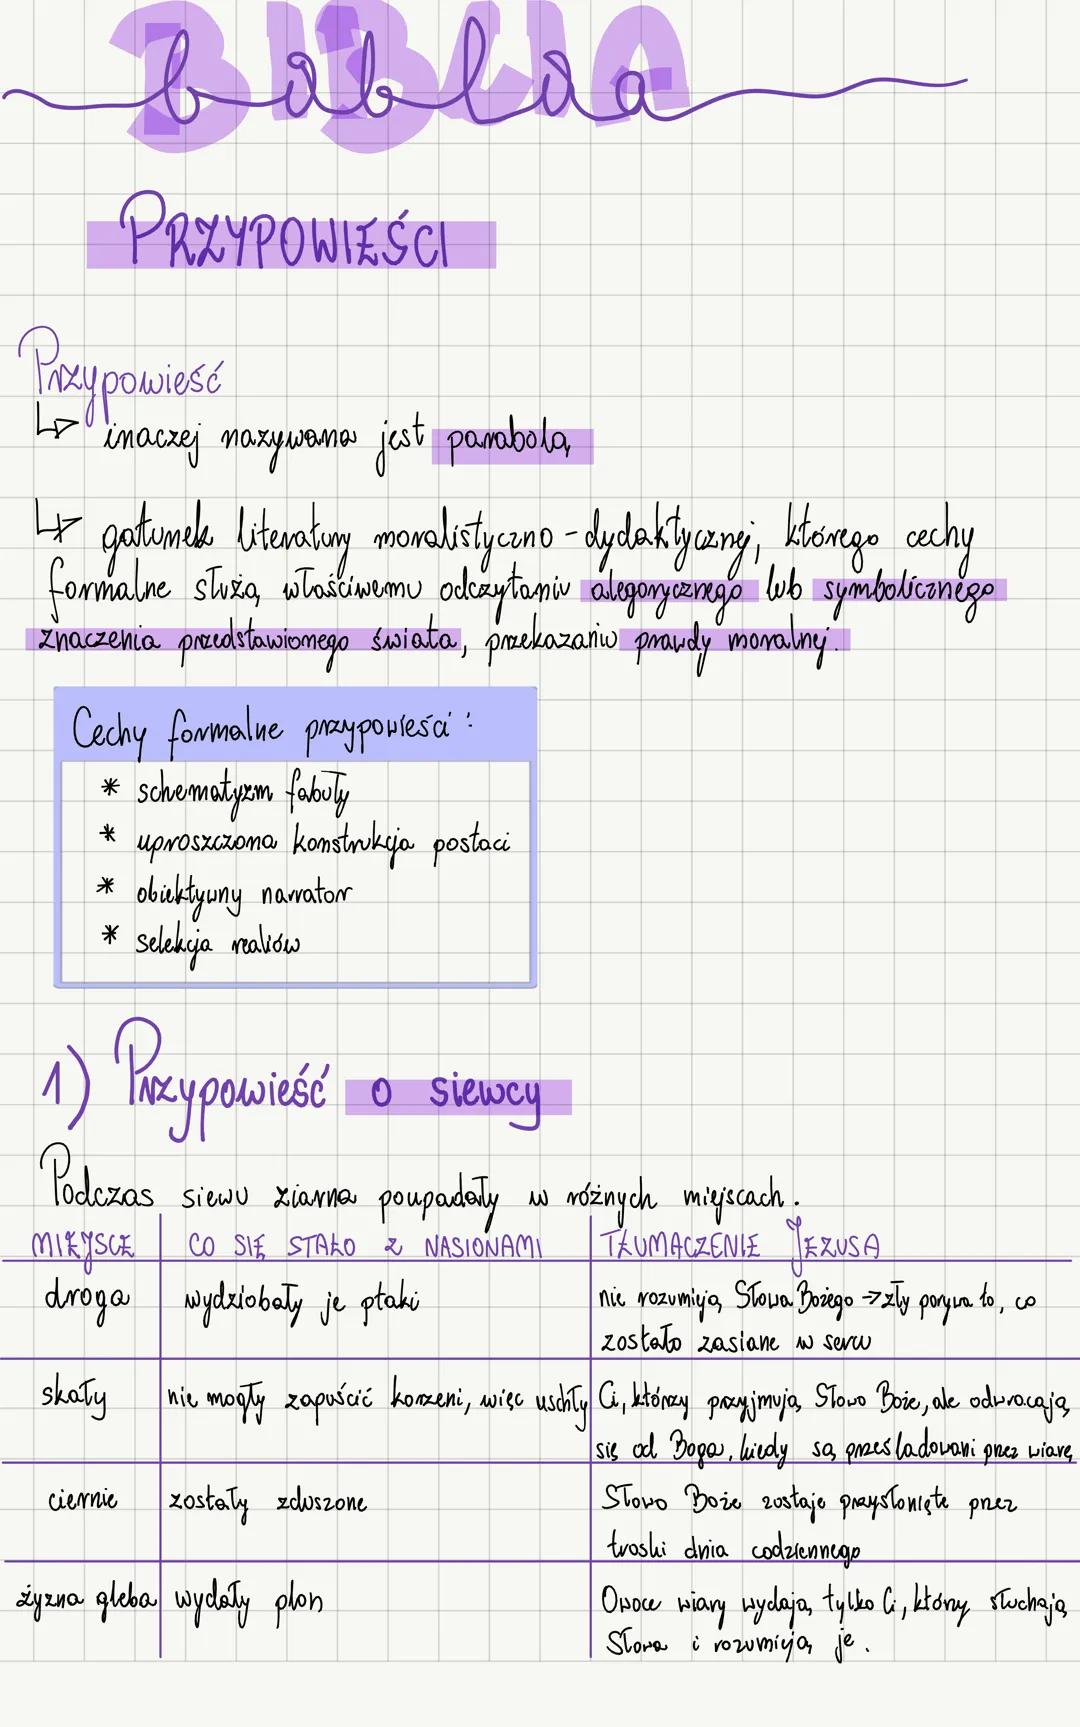 BIBLIA
biblia
PRZYPOWIEŚCI
Przypowieść
↳ inaczej nazywana jest parabolą
↳ gatunek literatury moralistyczno-dydaktycznej, którego cechy
formalne służą właściwemu odczytaniu alegorycznego lub symbolicznego
znaczenia przedstawionego świata, przekazaniu prawdy moralnej.
Cechy formalne przypowieści:
* schematyzm fabuły
* uproszczona konstrukcja postaci
* obiektywny narrator
* selekcja realiów
1) Przypowieść o siewcy
Podczas siewu ziarna poupadały w różnych miejscach.
MIEJSCE CO SIĘ STAŁO Z NASIONAMI TŁUMACZENIE JEZUSA
droga wydziobały je ptaki nie rozumieją Słowa Bożego → zły porywa to, co
zostało zasiane w sercu
skały nie mogły zapuścić korzeni, więc uschły Ci, którzy przyjmują Słowo Boże, ale odwracają
się od Boga, kiedy są prześladowani przez wiarę
ciernie zostały zduszone Słowo Boże zostaje przysłonięte przez
troski dnia codziennego
żyzna gleba wydały plon Owoce wiary wydają tylko Ci, którzy słuchają
Słowa i rozumieją je.